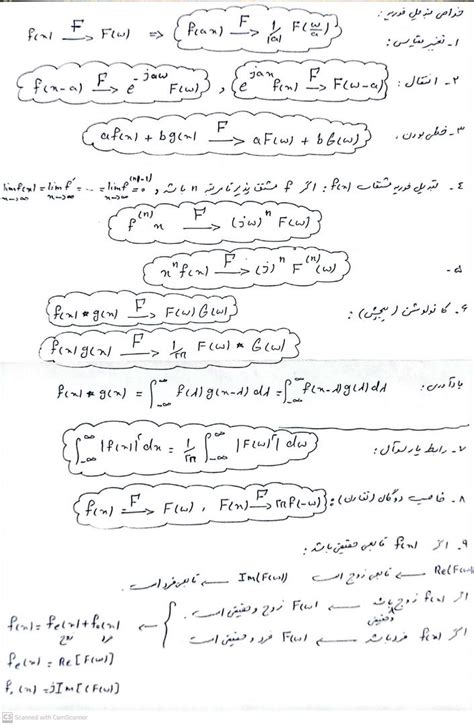 خواص تبدیل فوریه:
۱- تغییر مقیاس: f(x) —F→ F(ω) ⇒ f(ax) —F→ 1/|a| F(ω/a)
۲- انتقال: f(x-a) —F→ e^{-jaω} F(ω) , e^{jax} f(x) —F→ F(ω-a)
۳- خطی بودن: af(x) + bg(x) —F→ aF(ω) + bG(ω)
۴- تبدیل فوریه مشتقات f(x): اگر f مشتق پذیر تا مرتبه n باشد و lim_{x→∞} f(x) = lim_{x→∞} f' = ... = lim_{x→∞} f^{(n-1)} = 0
f^{(n)} x —F→ (jω)^n F(ω)
۵- x^n f(x) —F→ (j)^n F^{(n)}(ω)
۶- کانولوشن (پیچش): f(x) * g(x) —F→ F(ω) G(ω)
f(x) g(x) —F→ 1/2π F(ω) * G(ω)
یادآوری: f(x) * g(x) = ∫_{-∞}^{∞} f(λ) g(x-λ) dλ = ∫_{-∞}^{∞} f(x-λ) g(λ) dλ
۷- رابطه پارسوال: ∫_{-∞}^{∞} |f(x)|² dx = 1/2π ∫_{-∞}^{∞} |F(ω)|² dω
۸- خاصیت دوگان (تقارن): f(x) —F→ F(ω) , F(x) —F→ 2πf(-ω)
۹- اگر f(x) تابعی حقیقی باشد:
Re(F(ω)) ⇐ تابعی زوج است Im(F(ω)) ⇐ تابعی فرد است.
اگر f(x) زوج باشد ⇐ F(ω) زوج و حقیقی است.
و حقیقی
اگر f(x) فرد باشد ⇐ F(ω) فرد و حقیقی است
f(x) = f_e(x) + f_o(x)
زوج فرد
f_e(x) = Re[F(ω)]
f_o(x) = jIm[(F(ω)]
CS Scanned with CamScanner